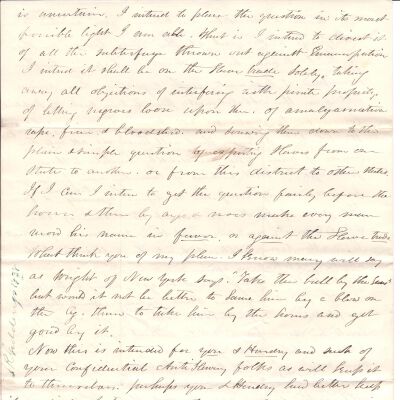 is uncertain. I intend to place the question in its most
forcible light I am able. that is I intend to divest it
of all the subterfuge thrown out against Emancipation
I intend it shall be on the Slave trade Solely, taking
away all objections of interfering with private property,
of letting negroes loose upon the. of amalgamation
rape, fire & bloodshed. and bring them down to the
plain & simple question by exporting Slaves from one
State to another. or from this district to other States.
If I can I intend to get the question fairly before the
house & then by ayes & noes make every man
record his name in favor or against the Slave trade
What think you of my plan. I know many will say
as Wright of New York says, "Take the bull by the horns"
but would it not be better to tame him by a blow on
the then to take him by the horns and get
gored by it.
Now this is intended for you & and such of
your Confidential Anti Slavery folks as will keep it
to themselves. perhaps you & had better keep